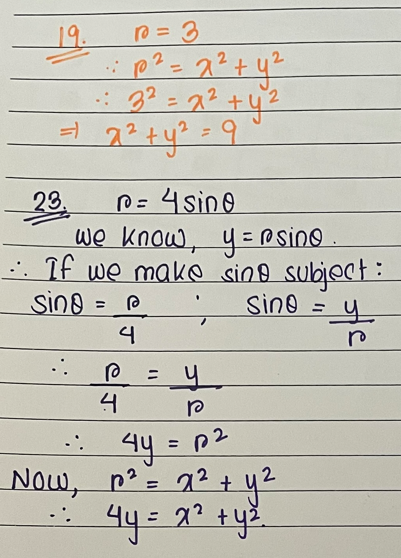 19. r = 3
∵ r² = x² + y²
∴ 3² = x² + y²
⇒ x² + y² = 9
23. r = 4sinθ
we know, y = rsinθ.
∴ If we make sinθ subject:
sinθ = r/4 ; sinθ = y/r
∴ r/4 = y/r
∴ 4y = r²
Now, r² = x² + y²
∴ 4y = x² + y².